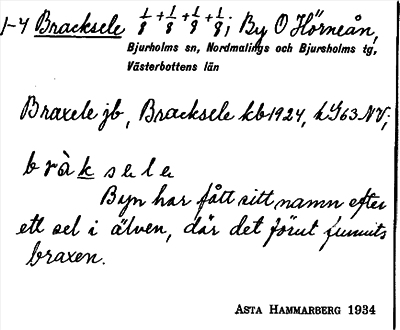 1-4 Bracksele 1/8 + 1/8 + 1/8 + 1/8; By O Hörneån,
Bjurholms sn, Nordmalings och Bjursholms tg,
Västerbottens län
Braxele jb, Bracksele kb 1924, LG 63 NV;
bràksele
Byn har fått sitt namn efter
ett sel i älven, där det förut funnits
braxen.
ASTA HAMMARBERG 1934